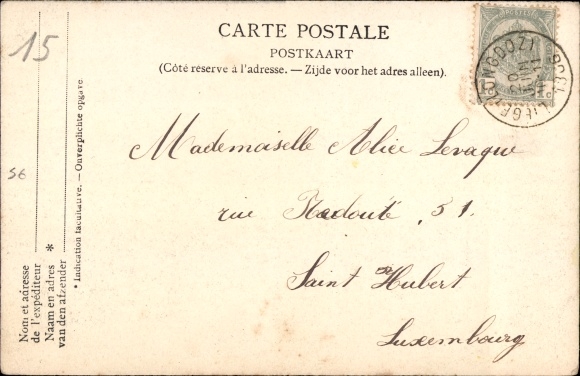 CARTE POSTALE
POSTKAART
(Côté réservé à l'adresse. — Zijde voor het adres alleen).
15
56
Nom et adresse
de l'expéditeur
Naam en adres *
van den afzender
* Indication facultative. — Onverplichte opgave
Mademoiselle Alice Levaque
rue Redouté, 51.
Saint Hubert
Luxembourg